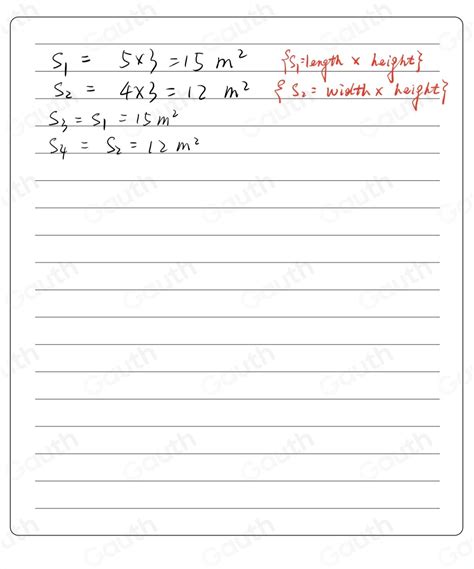 S₁ = 5×3 = 15 m² {S₁=length × height}
S₂ = 4×3 = 12 m² {S₂ = width × height}
S₃ = S₁ = 15 m²
S₄ = S₂ = 12 m²